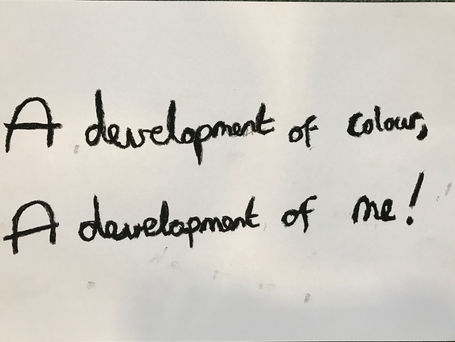 A development of colour,
A development of me!